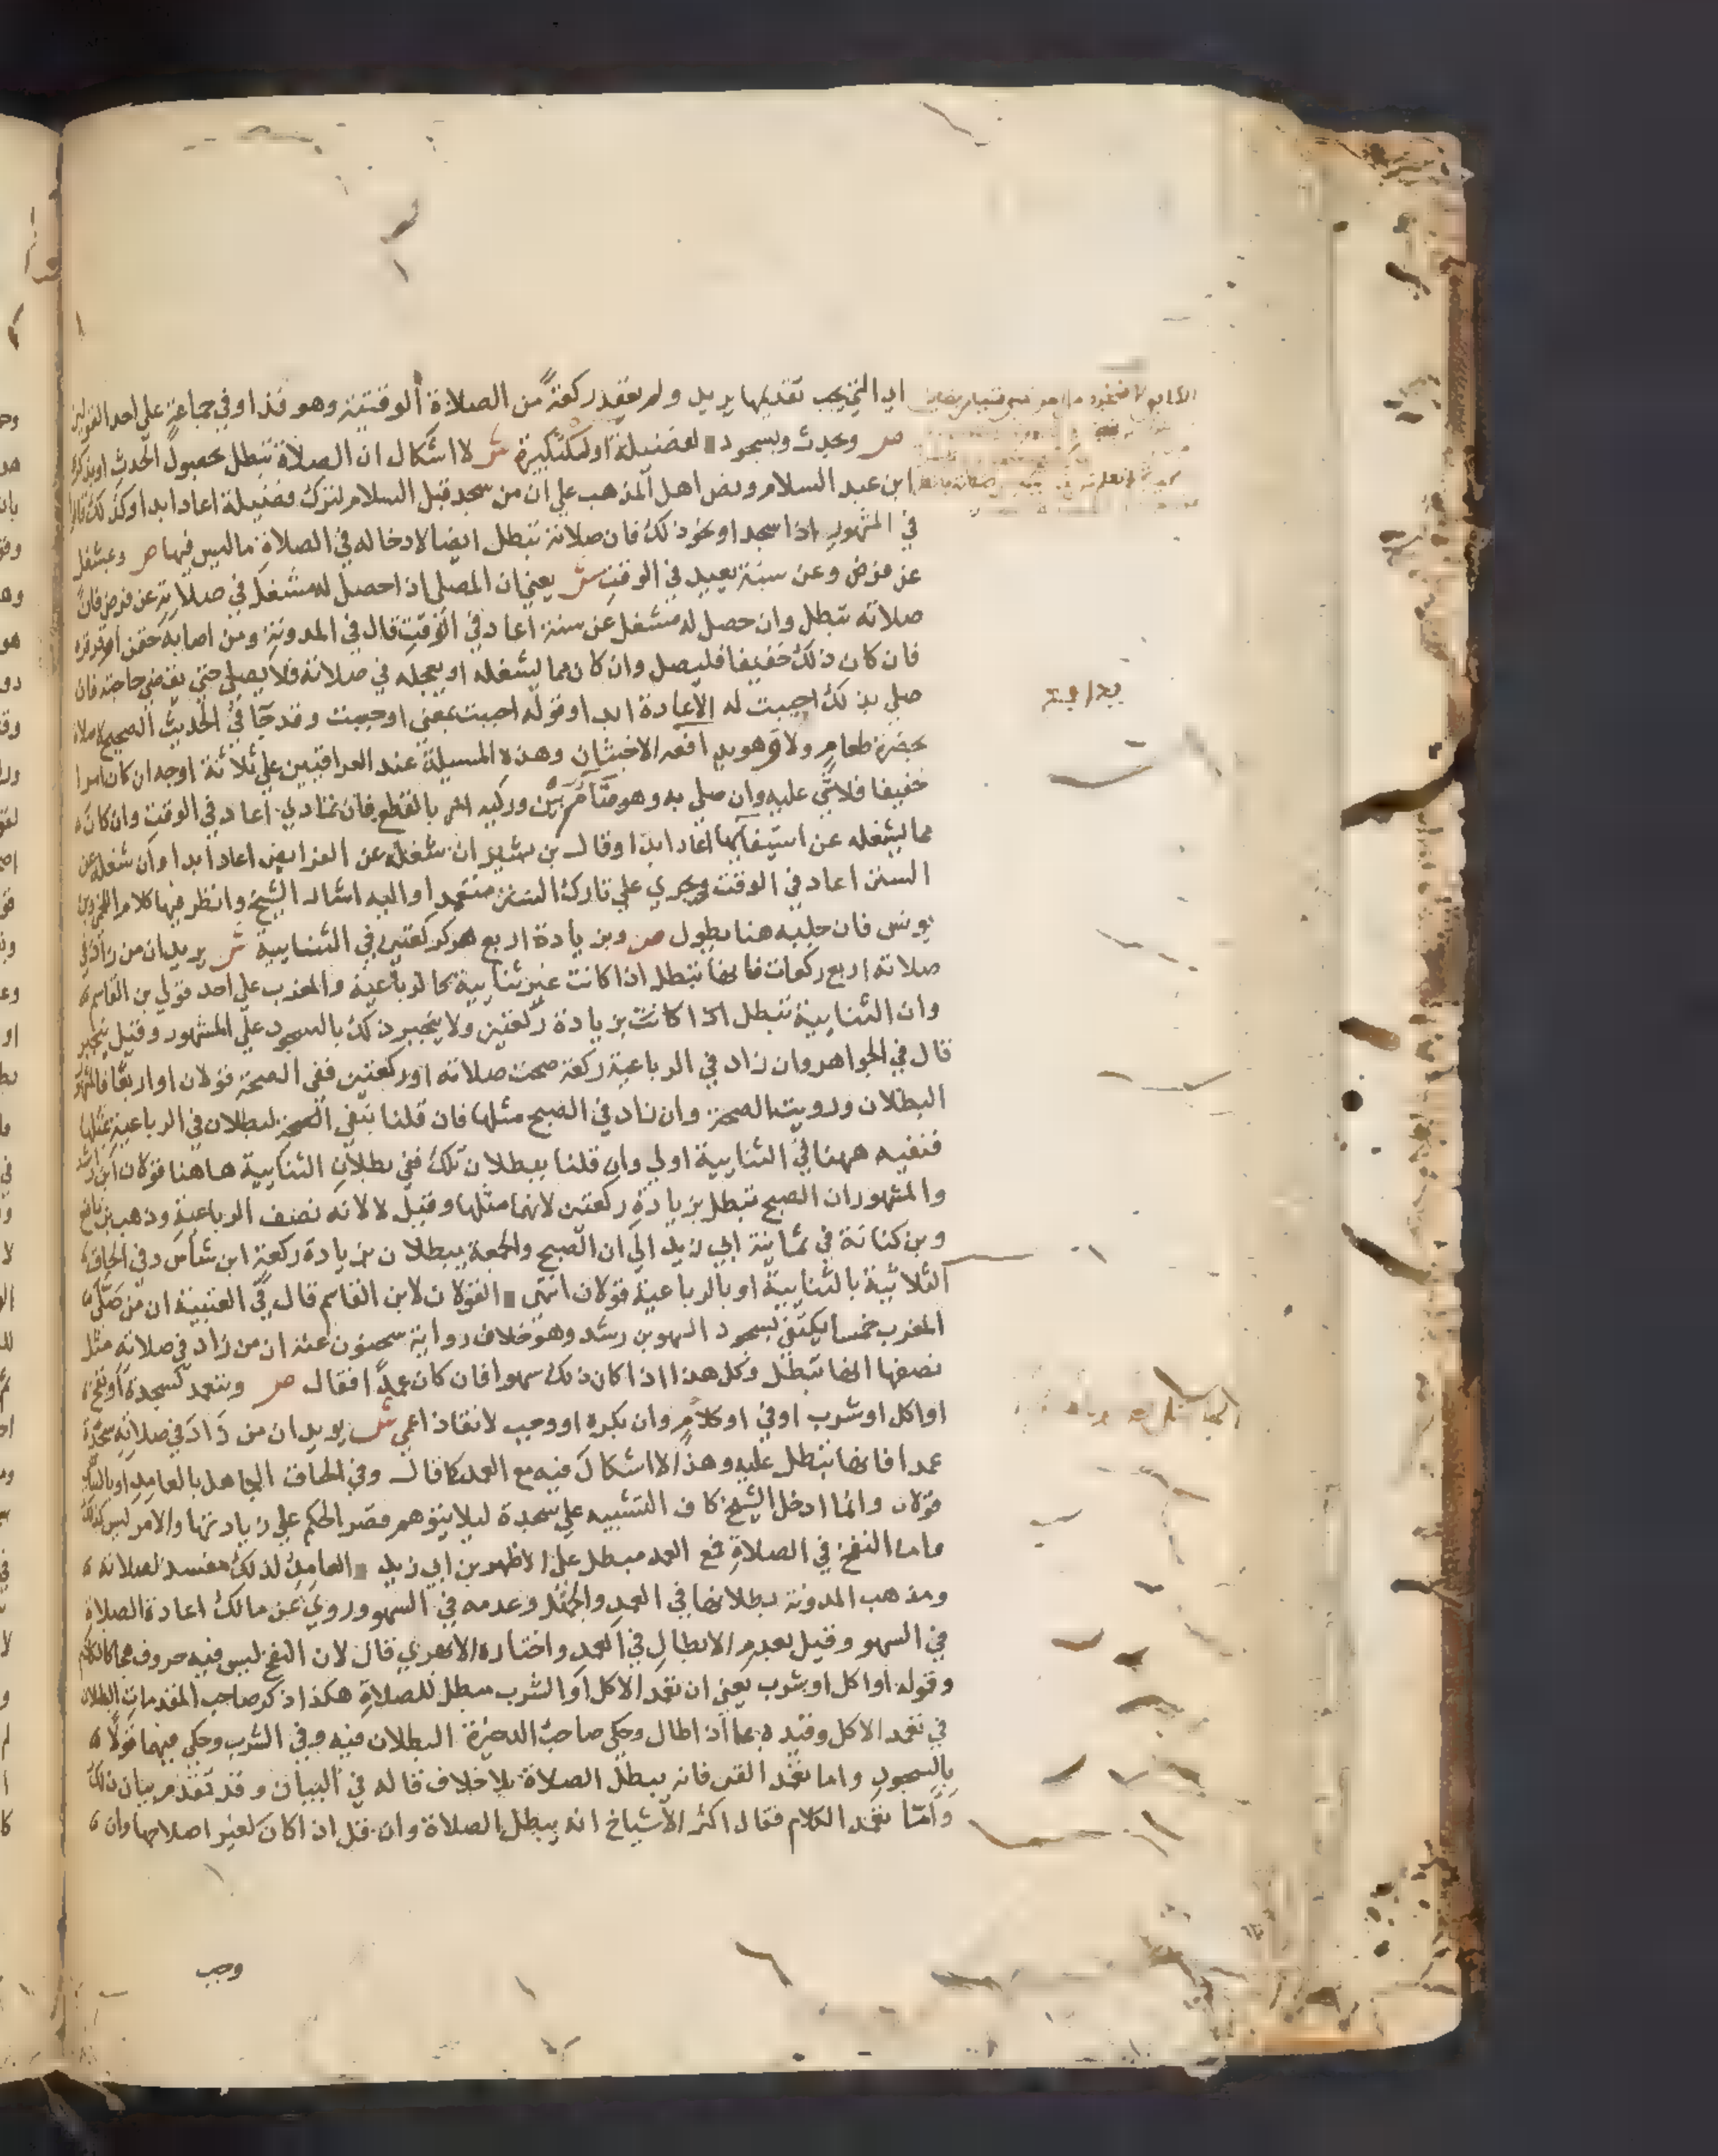 اي التي يجب تقديمها يريد ولم يعقد ركعة من الصلاة الوقتية وهو فذا او في جماعة علي احد القولين
ص وبحدث وبسجود لفضيلة او لتكبيرة ش لا اشكال ان الصلاة تبطل بحصول الحدث او بذكره
ابن عبد السلام ونص اهل المذهب علي ان من سجد قبل السلام لترك فضيلة اعاد ابدا وكذلك قالوا
في المشهور اذا سجد او نحو ذلك فان صلاته تبطل ايضا لادخاله في الصلاة ما ليس فيها ص وبمشغل
عن فرض وعن سنة يعيد في الوقت ش يعني ان المصلي اذا حصل له مشغل في صلاته عن فرض فان
صلاته تبطل وان حصل له مشغل عن سنة اعاد في الوقت قال في المدونة ومن اصابه حقن او قرقرة
فان كان ذلك خفيفا فليصل وان كان مما يشغله او يعجله في صلاته فلا يصلي حتي يقضي حاجته فان
صلي بذلك احببت له الاعادة ابدا وقوله احببت بمعني اوجبت وقد جا في الحديث الصحيح لا صلاة
بحضرة طعام ولا وهو يدافعه الاخبثان وهذه المسيلة عند العراقيين علي ثلاثة اوجه ان كان امرا
خفيفا فلا شي عليه وان صلي به وهو ضام بين وركيه امر بالقطع فان تمادي اعاد في الوقت وان كان
مما يشغله عن استيفائها اعاد ابدا وقال بن بشير ان شغله عن الفرايض اعاد ابدا وان شغله عن
السنن اعاد في الوقت ويجري علي تارك السنن متعمدا واليه اشار الشيخ وانظر فيها كلام اللخمي وبن
يونس فان جلبه هنا يطول ص وبزيادة اربع كركعتين في الثنايية ش يريد ان من زاد في
صلاته اربع ركعات فانها تبطل اذا كانت غير ثنايية كالرباعية والمغرب علي احد قولي بن القاسم
وان الثنايية تبطل اذا كانت بزيادة ركعتين ولا ينجبر ذلك بالسجود علي المشهور وقيل ينجبر
قال في الجواهر وان زاد في الرباعية ركعة صحت صلاته او ركعتين ففي الصحة قولان او اربعا فالمشهور
البطلان ورويت الصحة وان زاد في الصبح مثلها فان قلنا بنفي الصحة لبطلان في الرباعية بمثلها
فنفيه ههنا في الثنايية اولي وان قلنا يبطلان تلك ففي بطلان الثنايية هاهنا قولان ابن راشد
والمشهور ان الصبح تبطل بزيادة ركعتين لانهما مثلها وقيل لا لانه نصف الرباعية وذهب بن نافع
وبن كنانة في ثمانية ابي زيد الي ان الصبح والجمعة يبطلان بزيادة ركعة ابن شاس وفي الحاق
الثلاثية بالثنايية او بالرباعية قولان انتهي القولان لابن القاسم قال في العتبية ان من صلي
المغرب خمسا يكتفي بسجود السهو بن رشد وهو خلاف رواية سحنون عنه ان من زاد في صلاته مثل
نصفها انها تبطل وكل هذا اذا كان ذلك سهوا فان كان عمدا فقال ص وبتعمد كسجدة او نفخ
او اكل او شرب او قي او كلام وان بكره او وجب لانقاذ اعمي ش يريد ان من زاد في صلاته سجدة
عمدا فانها تبطل عليه وهذا لا اشكال فيه مع العمد كما قال وفي الحاق الجاهل بالعامد او بالناسي
قولان وانما ادخل الشيخ كاف التشبيه علي سجدة ليلا يتوهم قصر الحكم علي زيادتها والامر ليس كذلك
واما النفخ في الصلاة فمع العمد مبطل علي الاظهر بن ابي زيد العامد لذلك مفسد لصلاته
ومذهب المدونة بطلانها في العمد والجهل وعدمه في السهو وروي عن مالك اعادة الصلاة
في السهو وقيل بعدم الابطال في العمد واختاره الابهري قال لان النفخ ليس فيه حروف هجا كالكلام
وقوله او اكل او شرب يعني ان تعمد الاكل او الشرب مبطل للصلاة هكذا ذكر صاحب المقدمات البطلان
في تعمد الاكل وقيده بما اذا طال وحكي صاحب الدخيرة البطلان فيه وفي الشرب وحكي فيهما قولا
بالسجود واما تعمد القي فانه يبطل الصلاة بلا خلاف قاله في البيان وقد تقدم بيان ذلك
واما تعمد الكلام فقال اكثر الاشياخ انه يبطل الصلاة وان قل اذا كان لغير اصلاحها وان
وجب